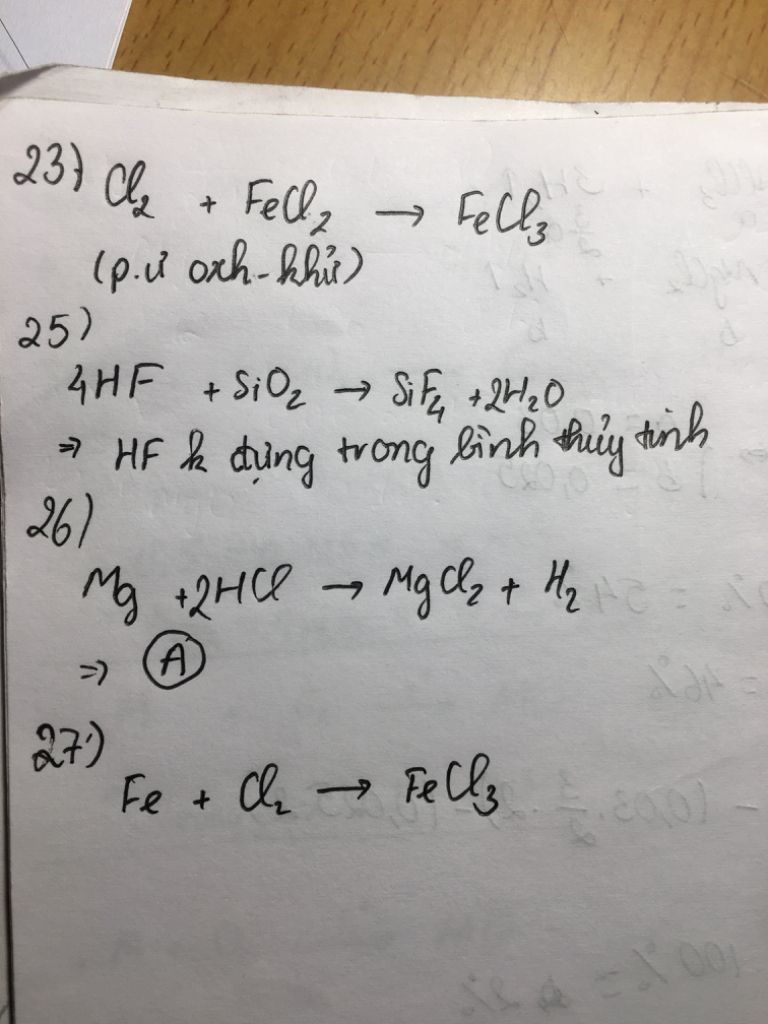 23) Cl₂ + FeCl₂ → FeCl₃
(p.ư oxh-khử)
25)
4HF + SiO₂ → SiF₄ + 2H₂O
⇒ HF k đựng trong bình thủy tinh
26)
Mg + 2HCl → MgCl₂ + H₂
⇒ Ⓐ
27)
Fe + Cl₂ → FeCl₃